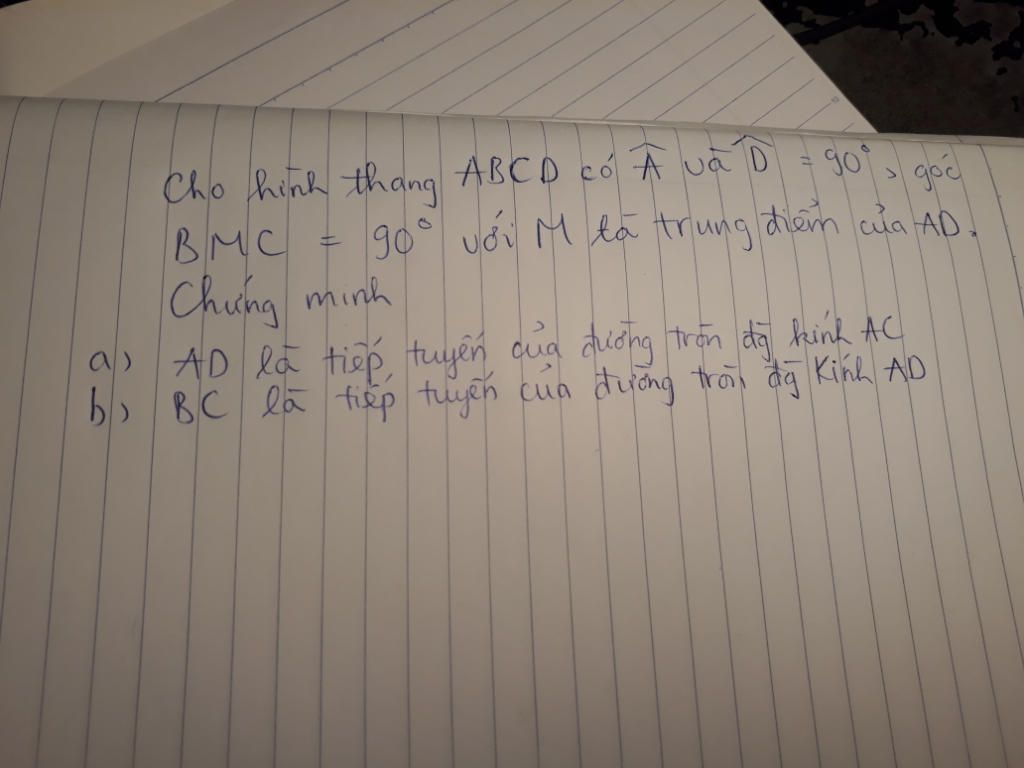 Cho hình thang ABCD có Â và D̂ = 90°, góc
BMC = 90° với M là trung điểm của AD.
Chứng minh
a) AD là tiếp tuyến của đường tròn đg kính AC
b) BC là tiếp tuyến của đường tròn đg Kính AD